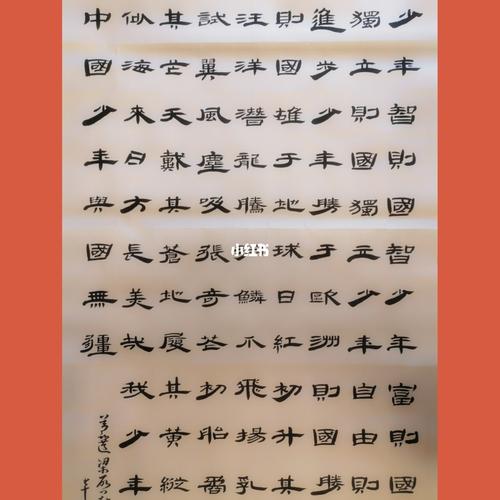 少年智則國智少年富則國
獨立則國獨立少年自由則
進步少年勝于歐洲則國勝
則國雄于地球日紅初升其
汪洋潛龍騰鱗爪飛揚乳
試翼風塵吸張奇花初胎矞
其芒天戴其蒼地履其黃縱
似海來日方長美哉我少年
中國少年與國無疆
小红书